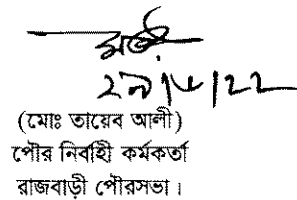 ২৯/৮/২২
(মোঃ তায়েব আলী)
পৌর নির্বাহী কর্মকর্তা
রাজবাড়ী পৌরসভা।